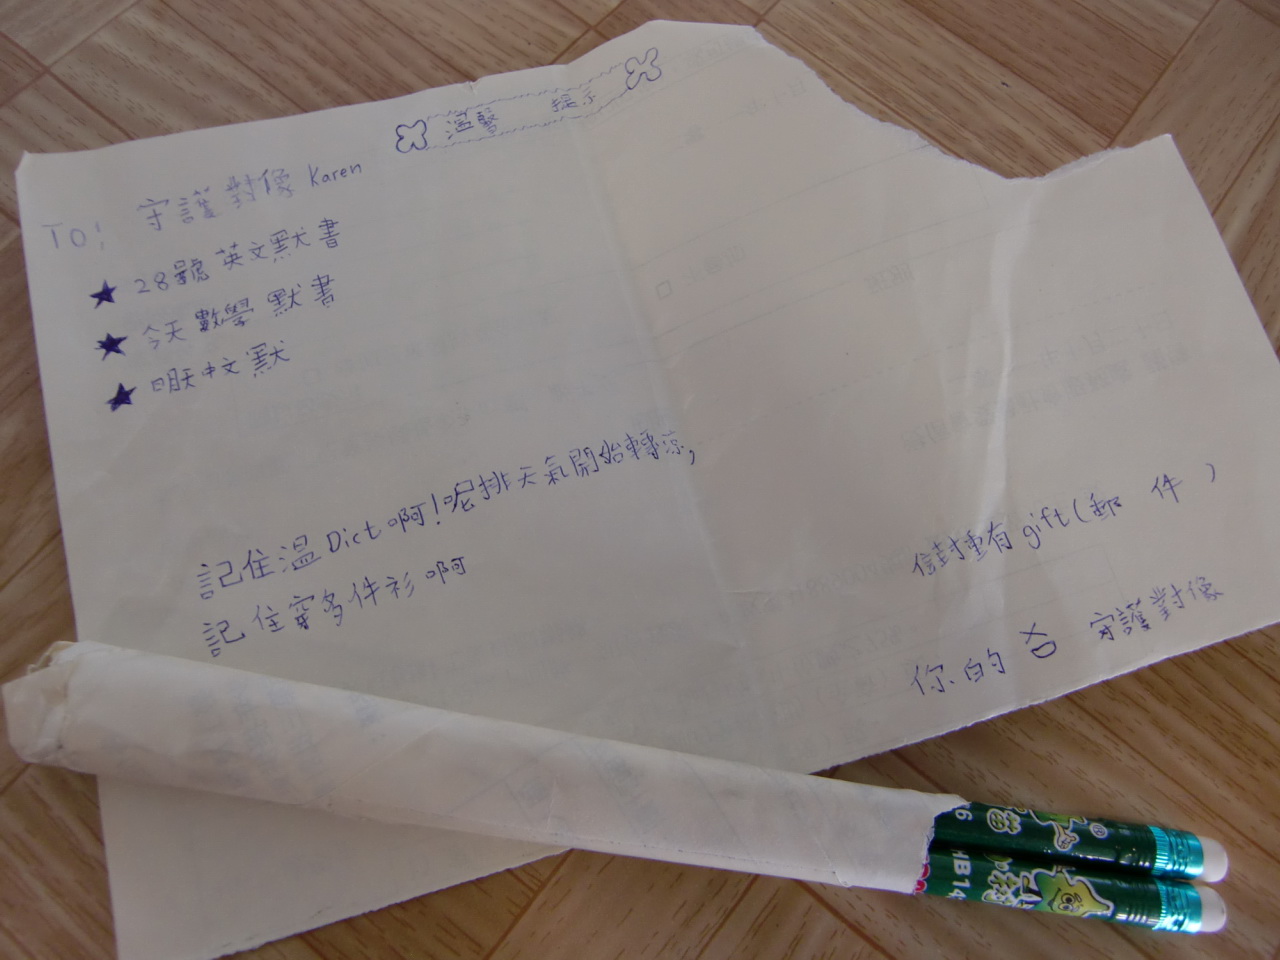 溫馨 提示
TO! 守護對像 Karen
★ 28號英文默書
★ 今天數學默書
★ 明天中文默
記住溫Dict啊!呢排天氣開始轉涼,
記住穿多件衫啊
信封重有gift(郵件)
你的 守護對像
HB14